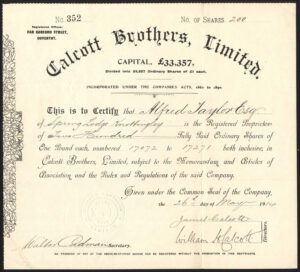 No. 352
No. OF SHARES 200
Registered Office:
FAR GOSFORD STREET,
COVENTRY.
Calcott Brothers, Limited.
CAPITAL, £33,357.
Divided into 33,357 Ordinary Shares of £1 each.
INCORPORATED UNDER THE COMPANIES ACTS, 1862 to 1890.
This is to Certify that Alfred Taylor Esq
of Spring Lodge is the Registered Proprietor
of Two Hundred Fully Paid Ordinary Shares of
One Pound each, numbered 17072 to 17271 both inclusive, in
Calcott Brothers, Limited, subject to the Memorandum and Articles of
Association and the Rules and Regulations of the said Company.
Given under the Common Seal of the Company,
the 26 day of May
James Calcott
William Calcott
Directors
Walter SECRETARY
NO TRANSFER OF ANY OF THE ABOVE-MENTIONED SHARES CAN BE REGISTERED WITHOUT THE PRODUCTION OF THIS CERTIFICATE.